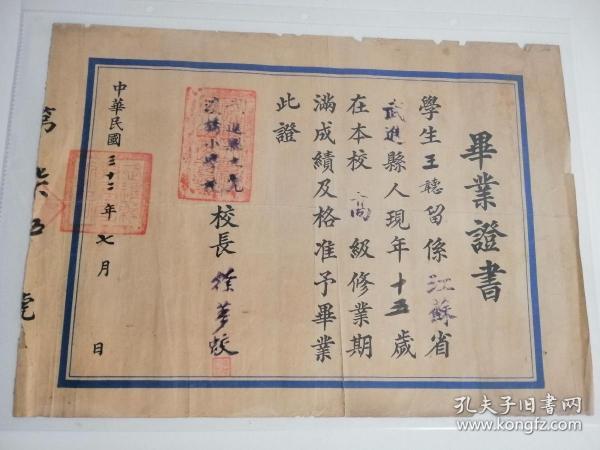 畢業證書
學生王聽留係江蘇省
武進縣人現年十五歲
在本校高級修業期
滿成績及格准予畢業
此證
校長徐夢蛟
中華民國三十二年七月 日
第 五號
孔夫子旧书网
www.kongfz.com